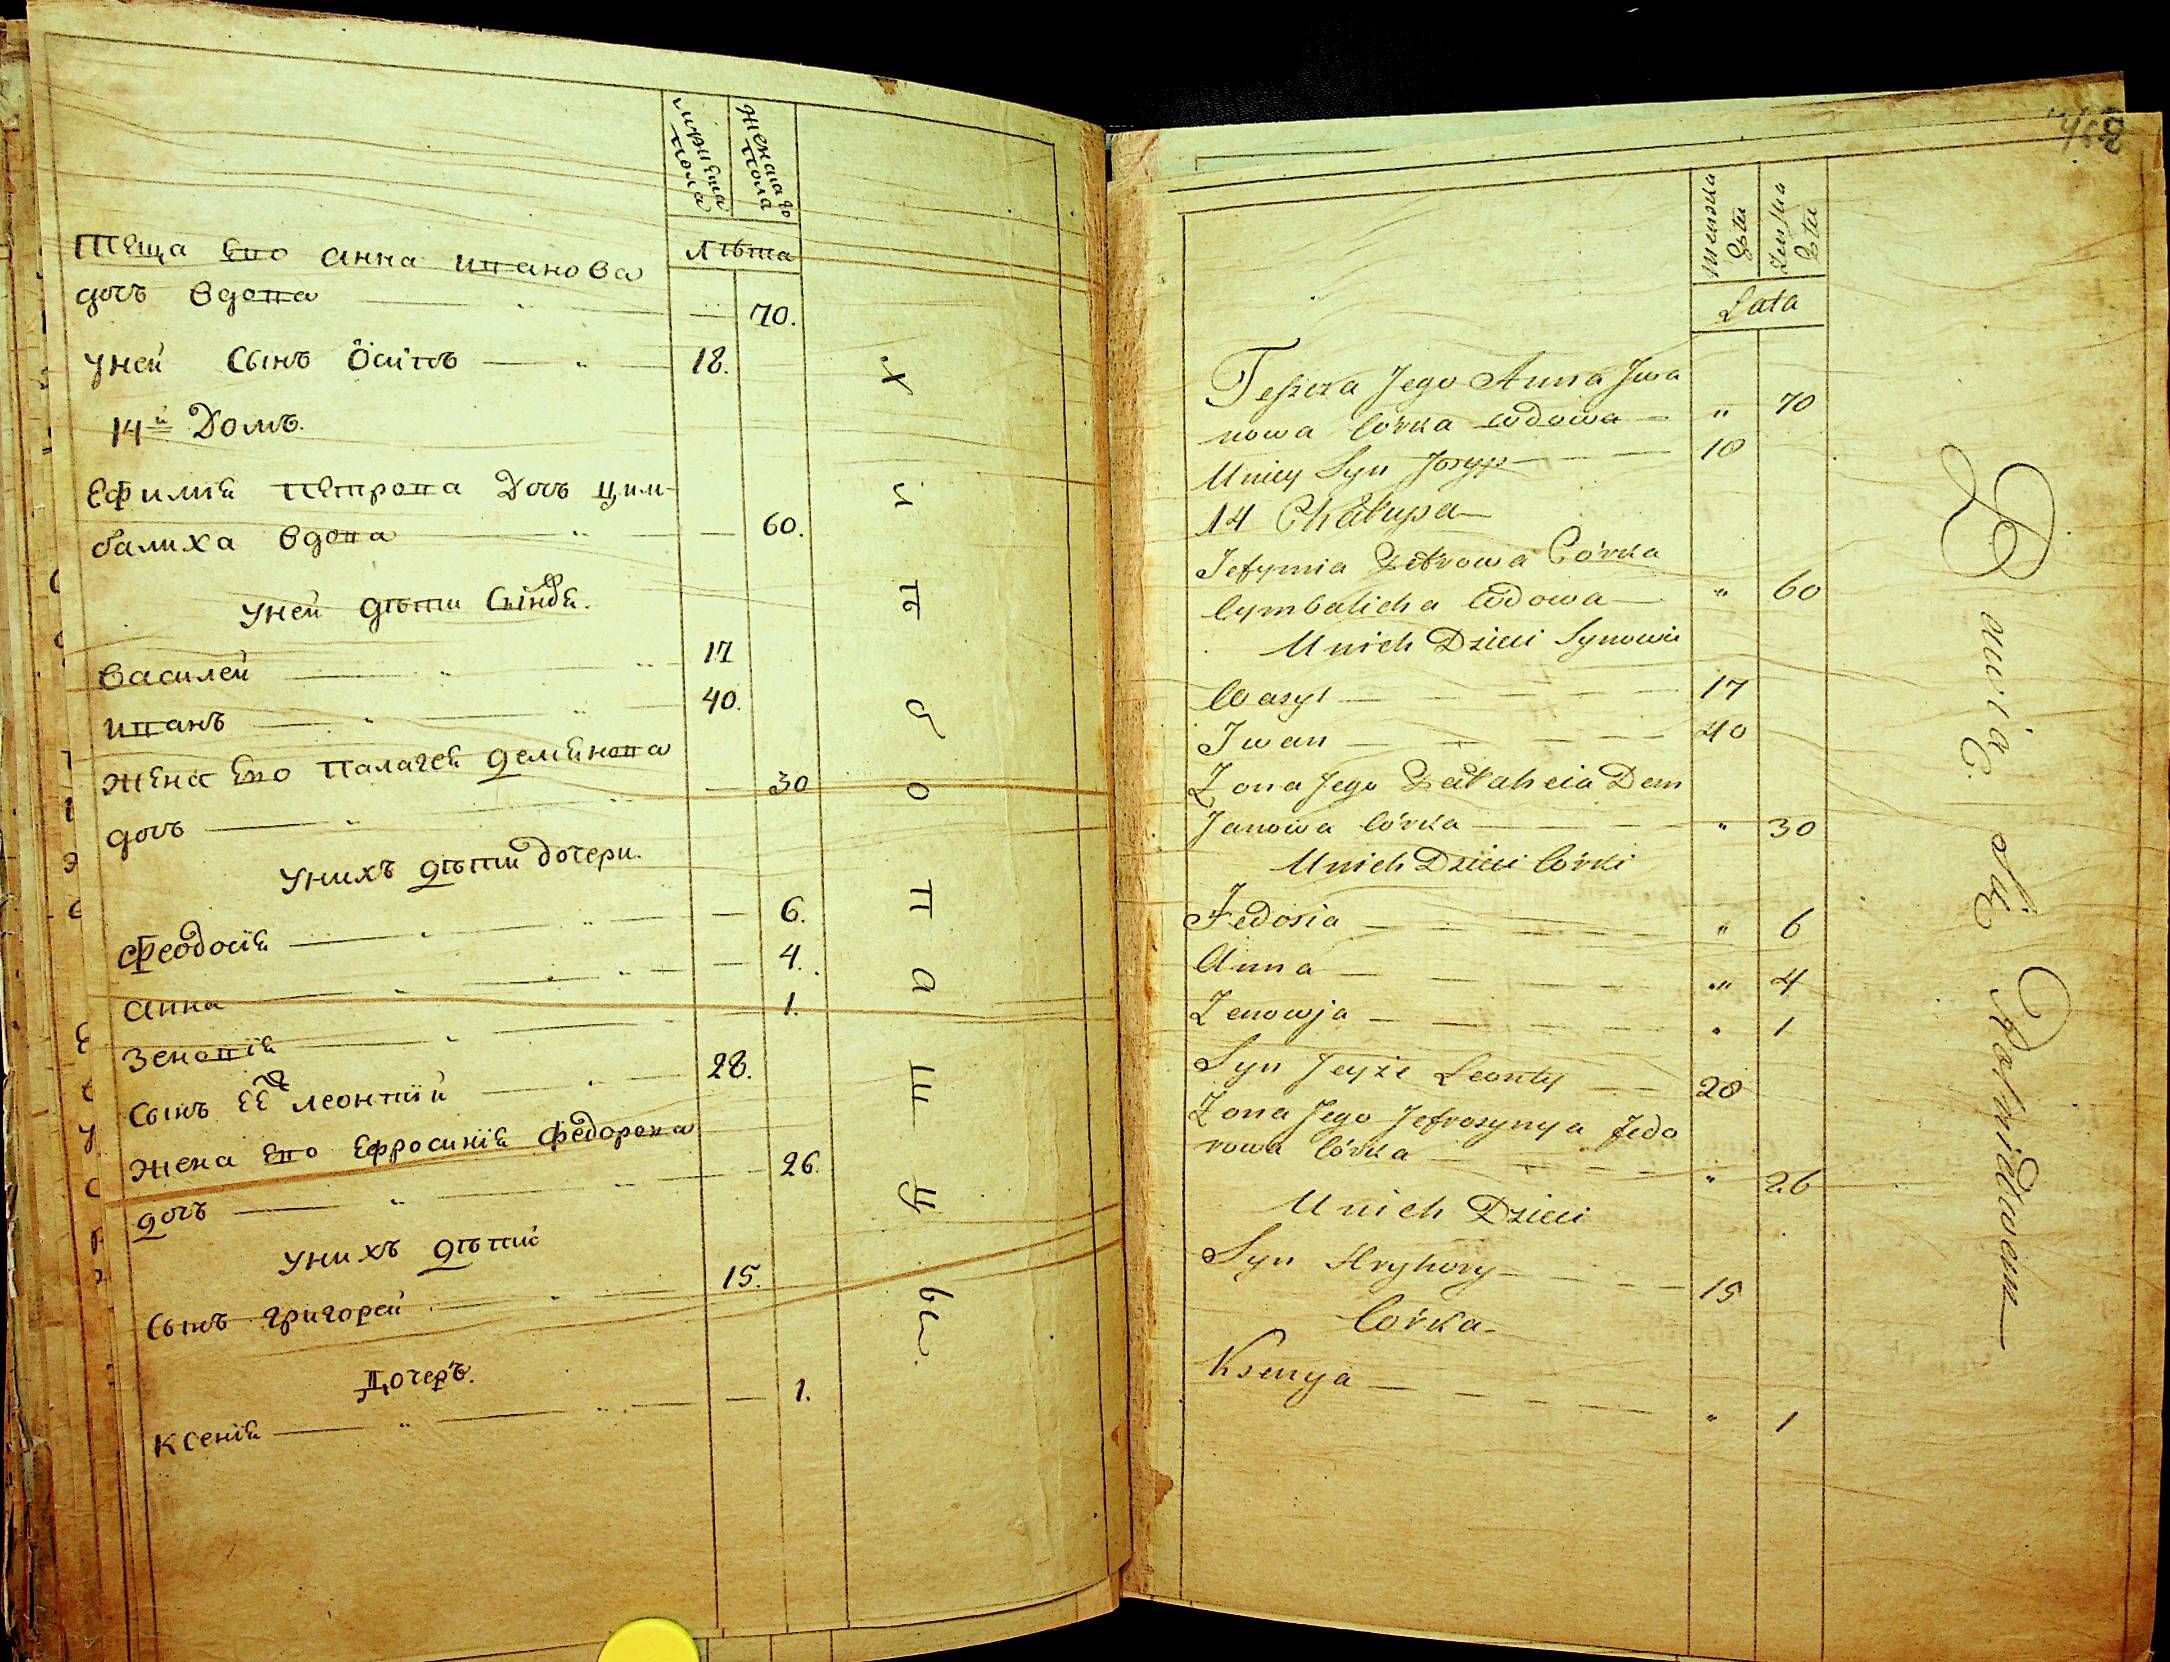 мужеска пола
женскаго пола
Лѣта
Теща Его Анна иванова
дочь вдова 70.
Уней Сынъ Осипъ 18.
14й Домъ.
Ефимия Петрова Дочь Цим-
балиха вдова 60.
Уней дѣти Сыновѣ.
Василей 17
иванъ 40.
Жена Его Палагея Демянова
дочь 30
Унихъ дѣти дочери.
Феодосия 6.
Анна 4.
Зеновия 1.
Сынъ ЕЕ Леонтий 28.
Жена Его Ефросиния Федорова
дочь 26.
Унихъ дѣти
Сынъ григорей 15.
Дочеръ.
Ксения 1.
х л ѣ б о п а ш ц ы.
Lata
Teszcza Jego Anna Jwa
nowa Córka wdowa — " 70
Uniey Syn Josyp — 18
14 Chałupa —
Jefymia Petrowa Córka
Cymbalicha wdowa — " 60
Unich Dzieci Synowie
Wasyl — 17
Iwan — 40
Żona Jego Pałaheia Dem
Janowa Córka — " 30
Unich Dzieci Córki
Fedosia — " 6
Anna — " 4
Zenowja — " 1
Syn Jeyże Leonty — 28
Żona Jego Jefrosynya Fedo
rowa Córka — " 26
Unich Dzieci
Syn Hryhory — 15
Córka —
Ksenya — " 1
Bawią się Rolnictwem